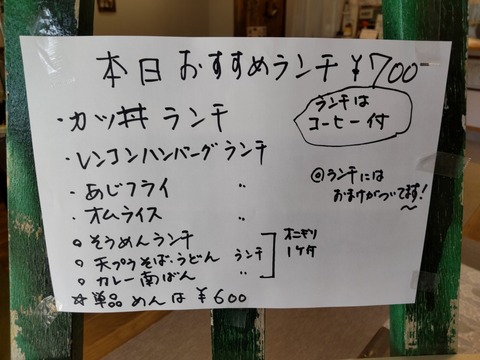 本日おすすめランチ ¥700-
・カツ丼 ランチ
ランチは
コーヒー付
・レンコンハンバーグ ランチ
・あじフライ 〃
・オムライス 〃
◎ランチには
おまけがついてます!
○そうめんランチ
○天プラそば・うどん ランチ
○カレー南ばん 〃
オニギリ
1ケ付
☆単品めんは ¥600